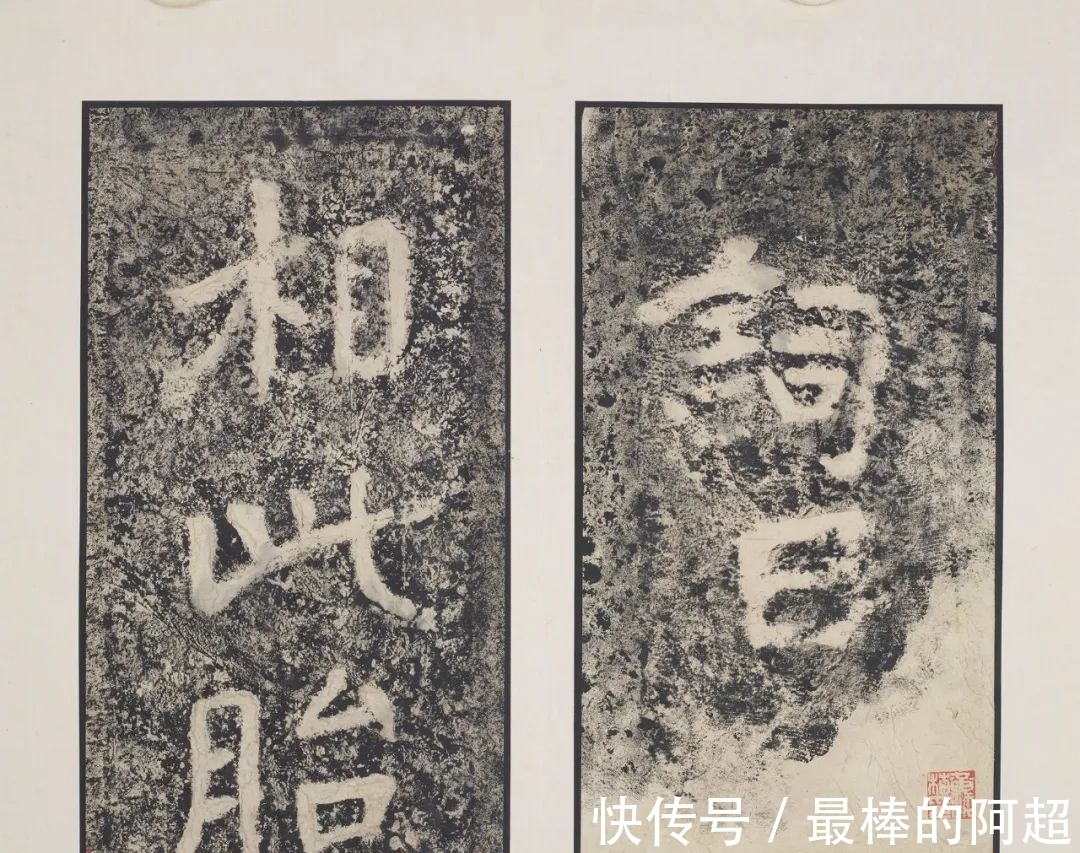 詞
曰
相此胎
快传号 / 最棒的阿超